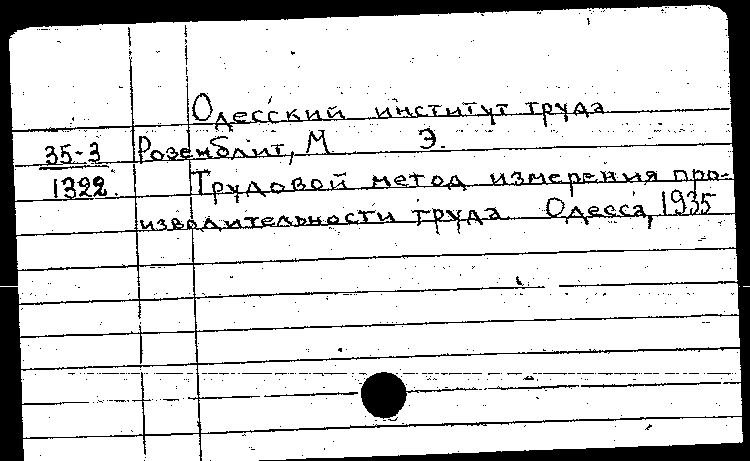 Одесский институт труда
35-3 Розенблит, М Э.
1322. Трудовой метод измерения про-
изводительности труда Одесса, 1935